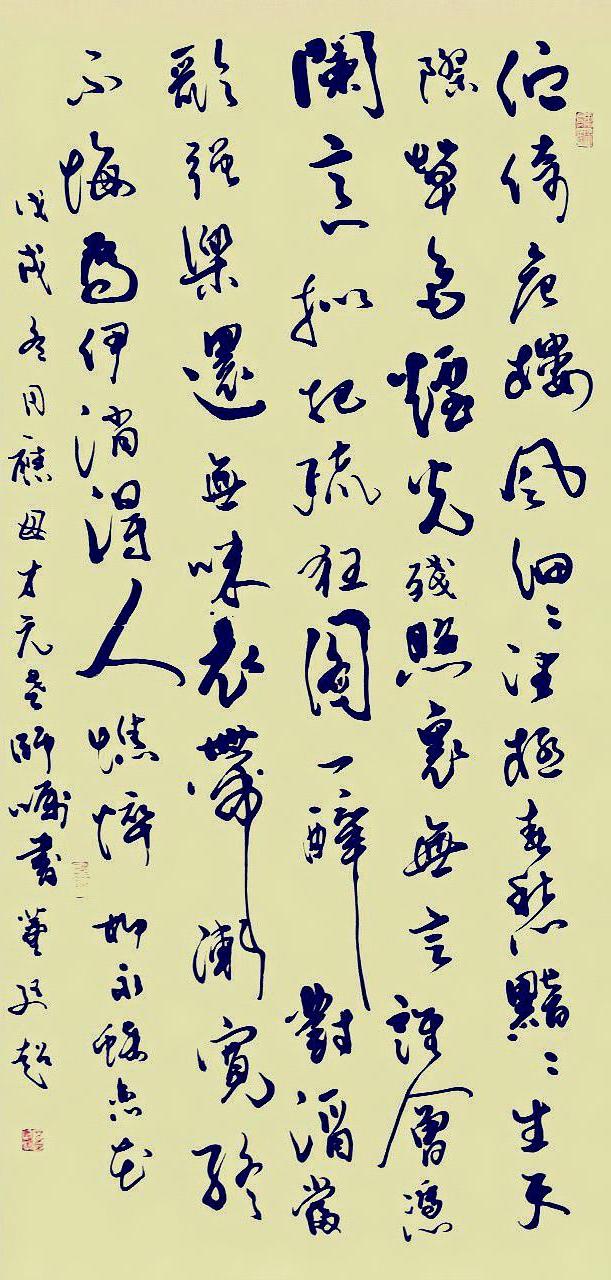 佇倚危樓風細々望極春愁黯々生天
際草色煙光殘照裏無言誰會憑
闌意擬把疏狂圖一醉對酒當
歌強樂還無味衣帶漸寬終
不悔為伊消得人憔悴 柳永蝶恋花
戊戌冬月應母才元老師囑書董